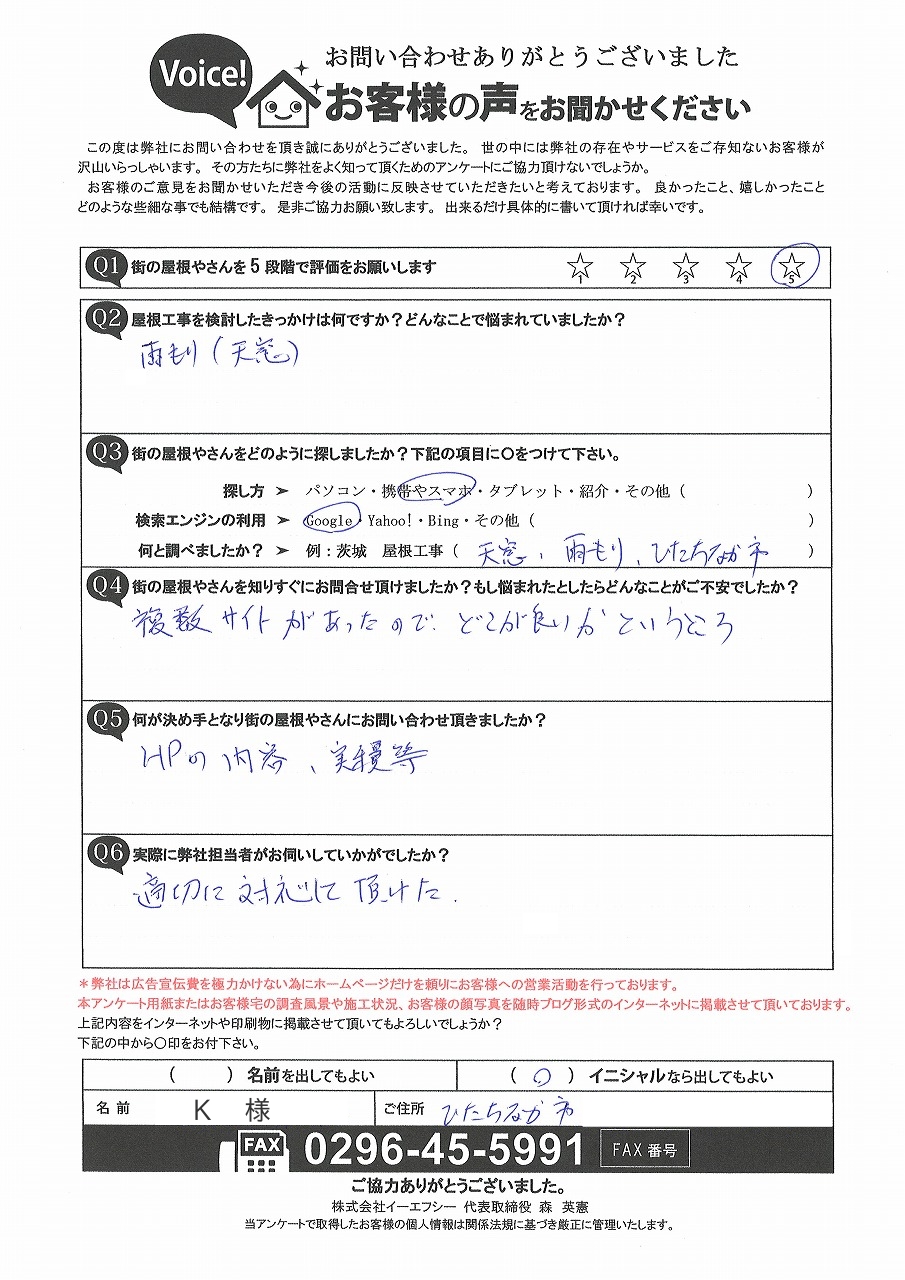 Voice!
お問い合わせありがとうございました
お客様の声をお聞かせください
この度は弊社にお問い合わせを頂き誠にありがとうございました。 世の中には弊社の存在やサービスをご存知ないお客様が
沢山いらっしゃいます。 その方たちに弊社をよく知って頂くためのアンケートにご協力頂けないでしょうか。
お客様のご意見をお聞かせいただき今後の活動に反映させていただきたいと考えております。 良かったこと、嬉しかったこと
どのような些細な事でも結構です。 是非ご協力お願い致します。 出来るだけ具体的に書いて頂ければ幸いです。
Q1 街の屋根やさんを5段階で評価をお願いします ☆1 ☆2 ☆3 ☆4 ☆5
Q2 屋根工事を検討したきっかけは何ですか？どんなことで悩まれていましたか？
雨もり（天窓）
Q3 街の屋根やさんをどのように探しましたか？下記の項目に〇をつけて下さい。
探し方 ➢ パソコン・携帯やスマホ・タブレット・紹介・その他（ ）
検索エンジンの利用 ➢ Google・Yahoo!・Bing・その他（ ）
何と調べましたか？ ➢ 例：茨城 屋根工事（ 天窓、雨もり、ひたちなか市 ）
Q4 街の屋根やさんを知りすぐにお問合せ頂けましたか？もし悩まれたとしたらどんなことがご不安でしたか？
複数サイトがあったので、どこが良いかというところ
Q5 何が決め手となり街の屋根やさんにお問い合わせ頂きましたか？
HPの内容、実績等
Q6 実際に弊社担当者がお伺いしていかがでしたか？
適切に対応して頂けた.
＊弊社は広告宣伝費を極力かけない為にホームページだけを頼りにお客様への営業活動を行っております。
本アンケート用紙またはお客様宅の調査風景や施工状況、お客様の顔写真を随時ブログ形式のインターネットに掲載させて頂いております。
上記内容をインターネットや印刷物に掲載させて頂いてもよろしいでしょうか？
下記の中から〇印をお付下さい。
（ ）名前を出してもよい （ 〇 ）イニシャルなら出してもよい
名前 K 様 ご住所 ひたちなか市
FAX 0296-45-5991 FAX番号
ご協力ありがとうございました。
株式会社イーエフシー 代表取締役 森 英憲
当アンケートで取得したお客様の個人情報は関係法規に基づき厳正に管理いたします。